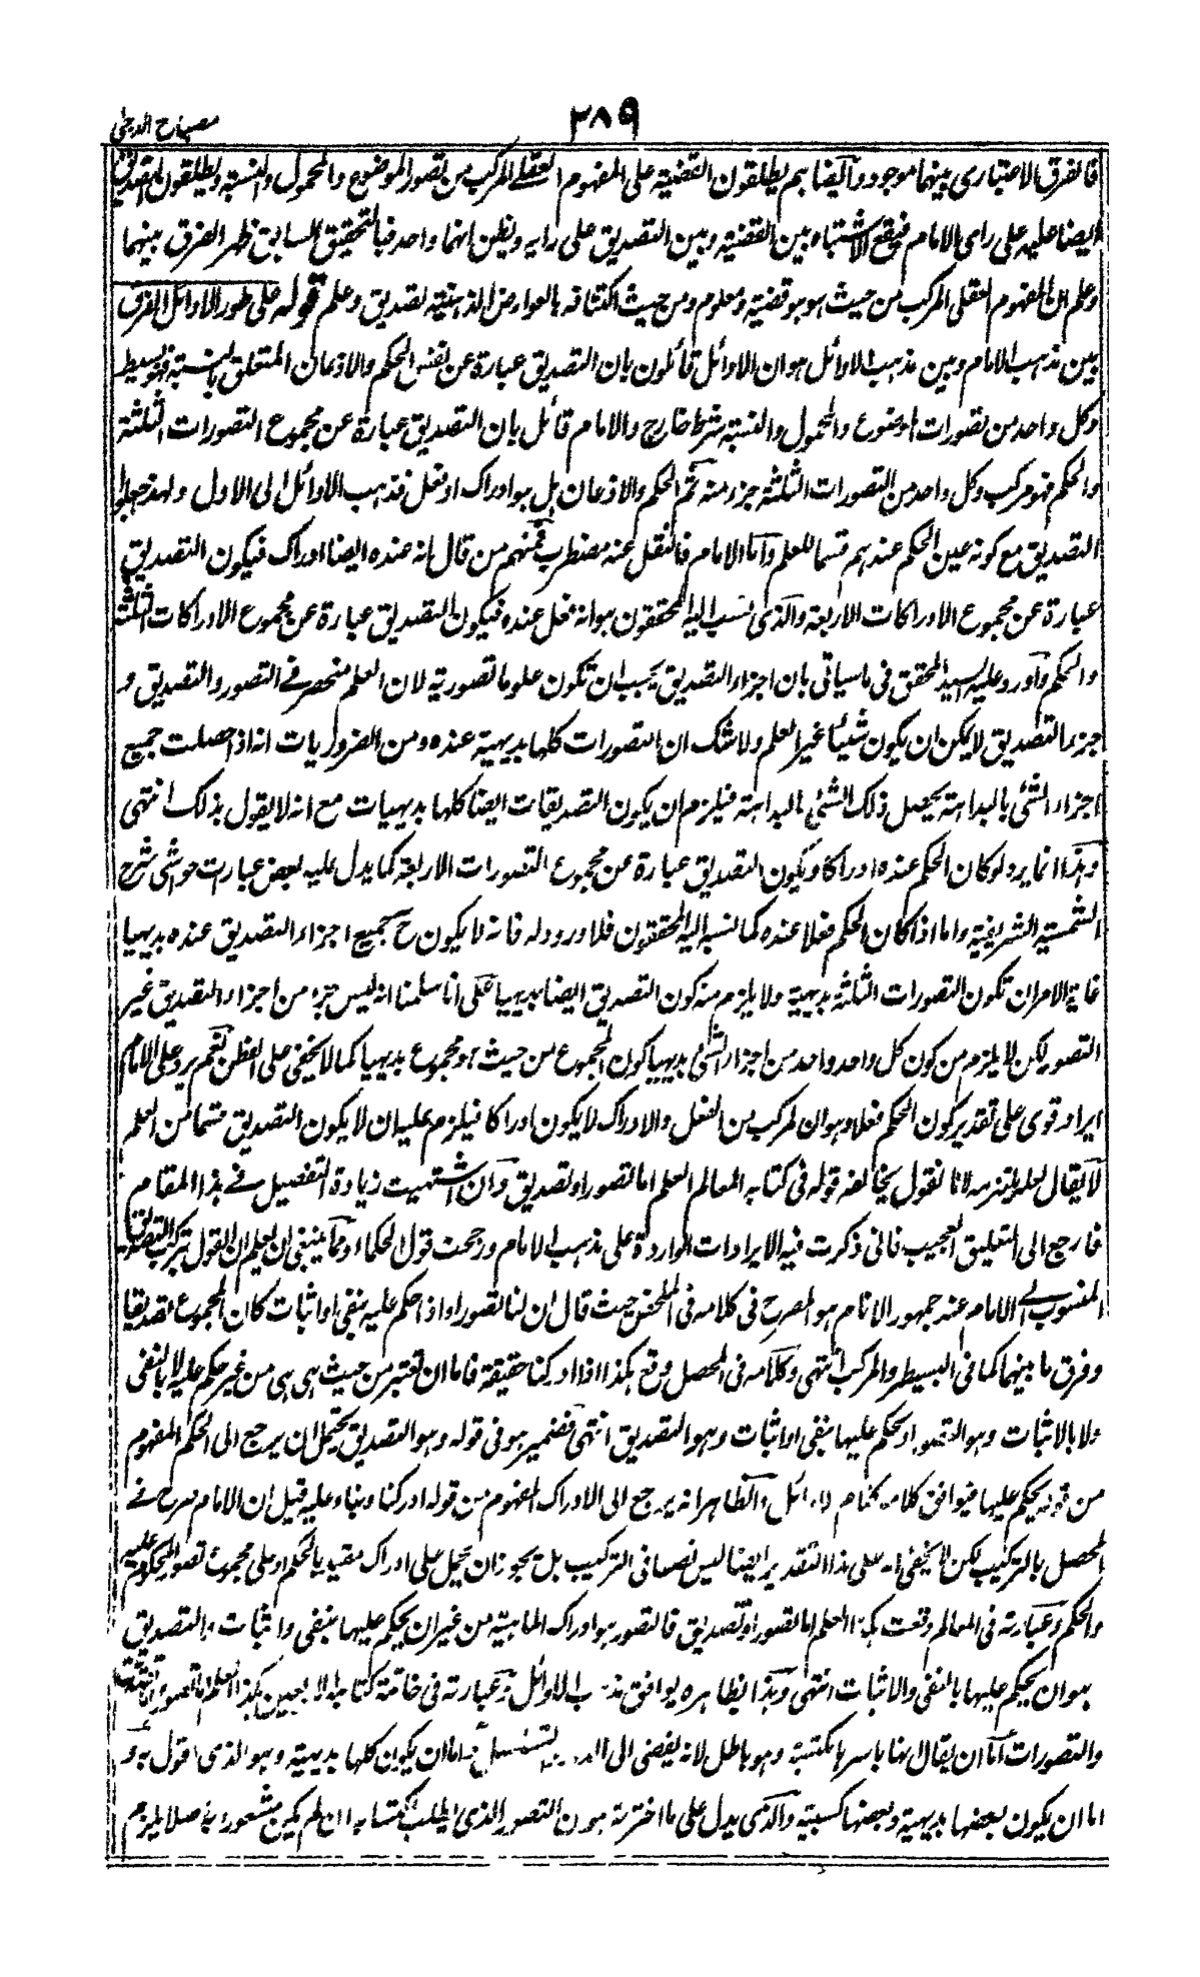 مصباح الدجى
٣٨٩
فالفرق الاعتباري بينهما موجود وايضا هم يطلقون القضية على المفهوم العقلي المركب من تصور الموضوع والمحمول والنسبة ويطلقون التصديق
ايضا عليه على راى الامام فيقع الاشتباه بين القضية وبين التصديق على رايه ويظن انهما واحد فبالتحقيق السابق ظهر الفرق بينهما
وعلم ان المفهوم العقلى المركب من حيث هو هو قضية ومعلوم ومن حيث اكتنافه بالعوارض الذهنية تصديق وعلم قوله على طور الاوائل الفرق
بين مذهب الامام وبين مذهب الاوائل هو ان الاوائل قائلون بان التصديق عبارة عن نفس الحكم والاذعان المتعلق بالنسبة فهو بسيط
وكل واحد من تصورات الموضوع والمحمول والنسبة شرط خارج والامام قائل بان التصديق عبارة عن مجموع التصورات الثلثة
والحكم فهو مركب وكل واحد من التصورات الثلثة جزء منه ثم الحكم والاذعان هل هو ادراك او فعل فذهب الاوائل الى الاول ولهذا جعلوا
التصديق مع كونه عين الحكم عندهم قسما للعلم واما الامام فالنقل عنه مضطرب فمنهم من قال انه عنده ايضا ادراك فيكون التصديق
عبارة عن مجموع الادراكات الاربعة والذى نسب اليه المحققون هو انه فعل عنده فيكون التصديق عبارة عن مجموع الادراكات الثلثة
والحكم واورد عليه السيد المحقق في ما سياتي بان اجزاء التصديق يجب ان تكون علوما تصورية لان العلم منحصر في التصور والتصديق و
جزء التصديق لا يمكن ان يكون شيئا غير العلم ولا شك ان التصورات كلها بديهية عنده ومن الضروريات انه اذا حصلت جميع
اجزاء الشئ بالبداهة يحصل ذلك الشئ بالبداهة فيلزم ان يكون التصديقات ايضا كلها بديهيات مع انه لا يقول بذلك انتهى
وهذا انما يرد لو كان الحكم عنده ادراكا ويكون التصديق عبارة عن مجموع التصورات الاربعة كما يدل عليه بعض عبارات حواشى شرح
الشمسية الشريفية واما اذا كان الحكم فعلا عنده كما نسبه اليه المحققون فلا ورود له فانه لا يكون ح جميع اجزاء التصديق عنده بديهيا
غاية الامر ان تكون التصورات الثلثة بديهية ولا يلزم منه كون التصديق ايضا بديهيا على انا سلمنا انه ليس جزء من اجزاء التصديق غير
التصور لكن لا يلزم من كون كل واحد واحد من اجزاء الشئ بديهيا كون المجموع من حيث هو مجموع بديهيا كما لا يخفى على الفطن نعم يرد على الامام
ايراد قوى على تقدير كون الحكم فعلا وهو ان المركب من الفعل والادراك لا يكون ادراكا فيلزم عليه ان لا يكون التصديق قسما من العلم
لا يقال لعله التزمه لانا نقول يخالفه قوله في كتابه المعالم العلم اما تصور او تصديق وان اشتهيت زيادة التفصيل في هذا المقام
فارجع الى التعليق العجيب فانى ذكرت فيه الايرادات الواردة على مذهب الامام ورجحت قول الحكماء ومما ينبغى ان يعلم ان القول بتركب التصديق
المنسوب الى الامام عند جمهور الانام هو المصرح في كلامه فى الملخص حيث قال ان لنا تصورا واذا حكم عليه بنفى او اثبات كان المجموع تصديقا
وفرق ما بينهما كما في البسيط والمركب انتهى وكلامه فى المحصل وقع هكذا اذا ادركنا حقيقة فاما ان تعتبر من حيث هى هى من غير حكم عليه لا بالنفى
ولا بالاثبات وهو التصور او يحكم عليها بنفى او اثبات وهو التصديق انتهى فضمير هو فى قوله وهو التصديق يحتمل ان يرجع الى الحكم المفهوم
من قوله يحكم عليها فيوافق كلامه كلام الاوائل والظاهر انه يرجع الى الادراك المفهوم من قوله ادركنا وبناء عليه قيل ان الامام صرح في
المحصل بالتركيب لكن لا يخفى انه على هذا التقدير ايضا ليس نصا في التركيب بل يجوز ان يحمل على ادراك مقيد بالحكم او على مجموع تصور المحكوم عليه
والحكم وعبارته فى المعالم وقعت هكذا العلم اما تصور او تصديق فالتصور هو ادراك الماهية من غير ان يحكم عليها بنفى واثبات والتصديق
هو ان يحكم عليها بالنفى والاثبات انتهى وهذا بظاهره يوافق مذهب الاوائل وعبارته فى خاتمة كتابه الاربعين هكذا العلم اما تصور
والتصورات اما ان يقال انها باسرها مكتسبة وهو باطل لانه يفضى الى اما ان يكون كلها بديهية وهو الذى اقول به و
اما ان يكون بعضها بديهية وبعضها كسبية والذى يدل على ما اخترته هو ان التصور الذى يطلب اكتسابه ان لم يكن مشعورا به اصلا يلزم